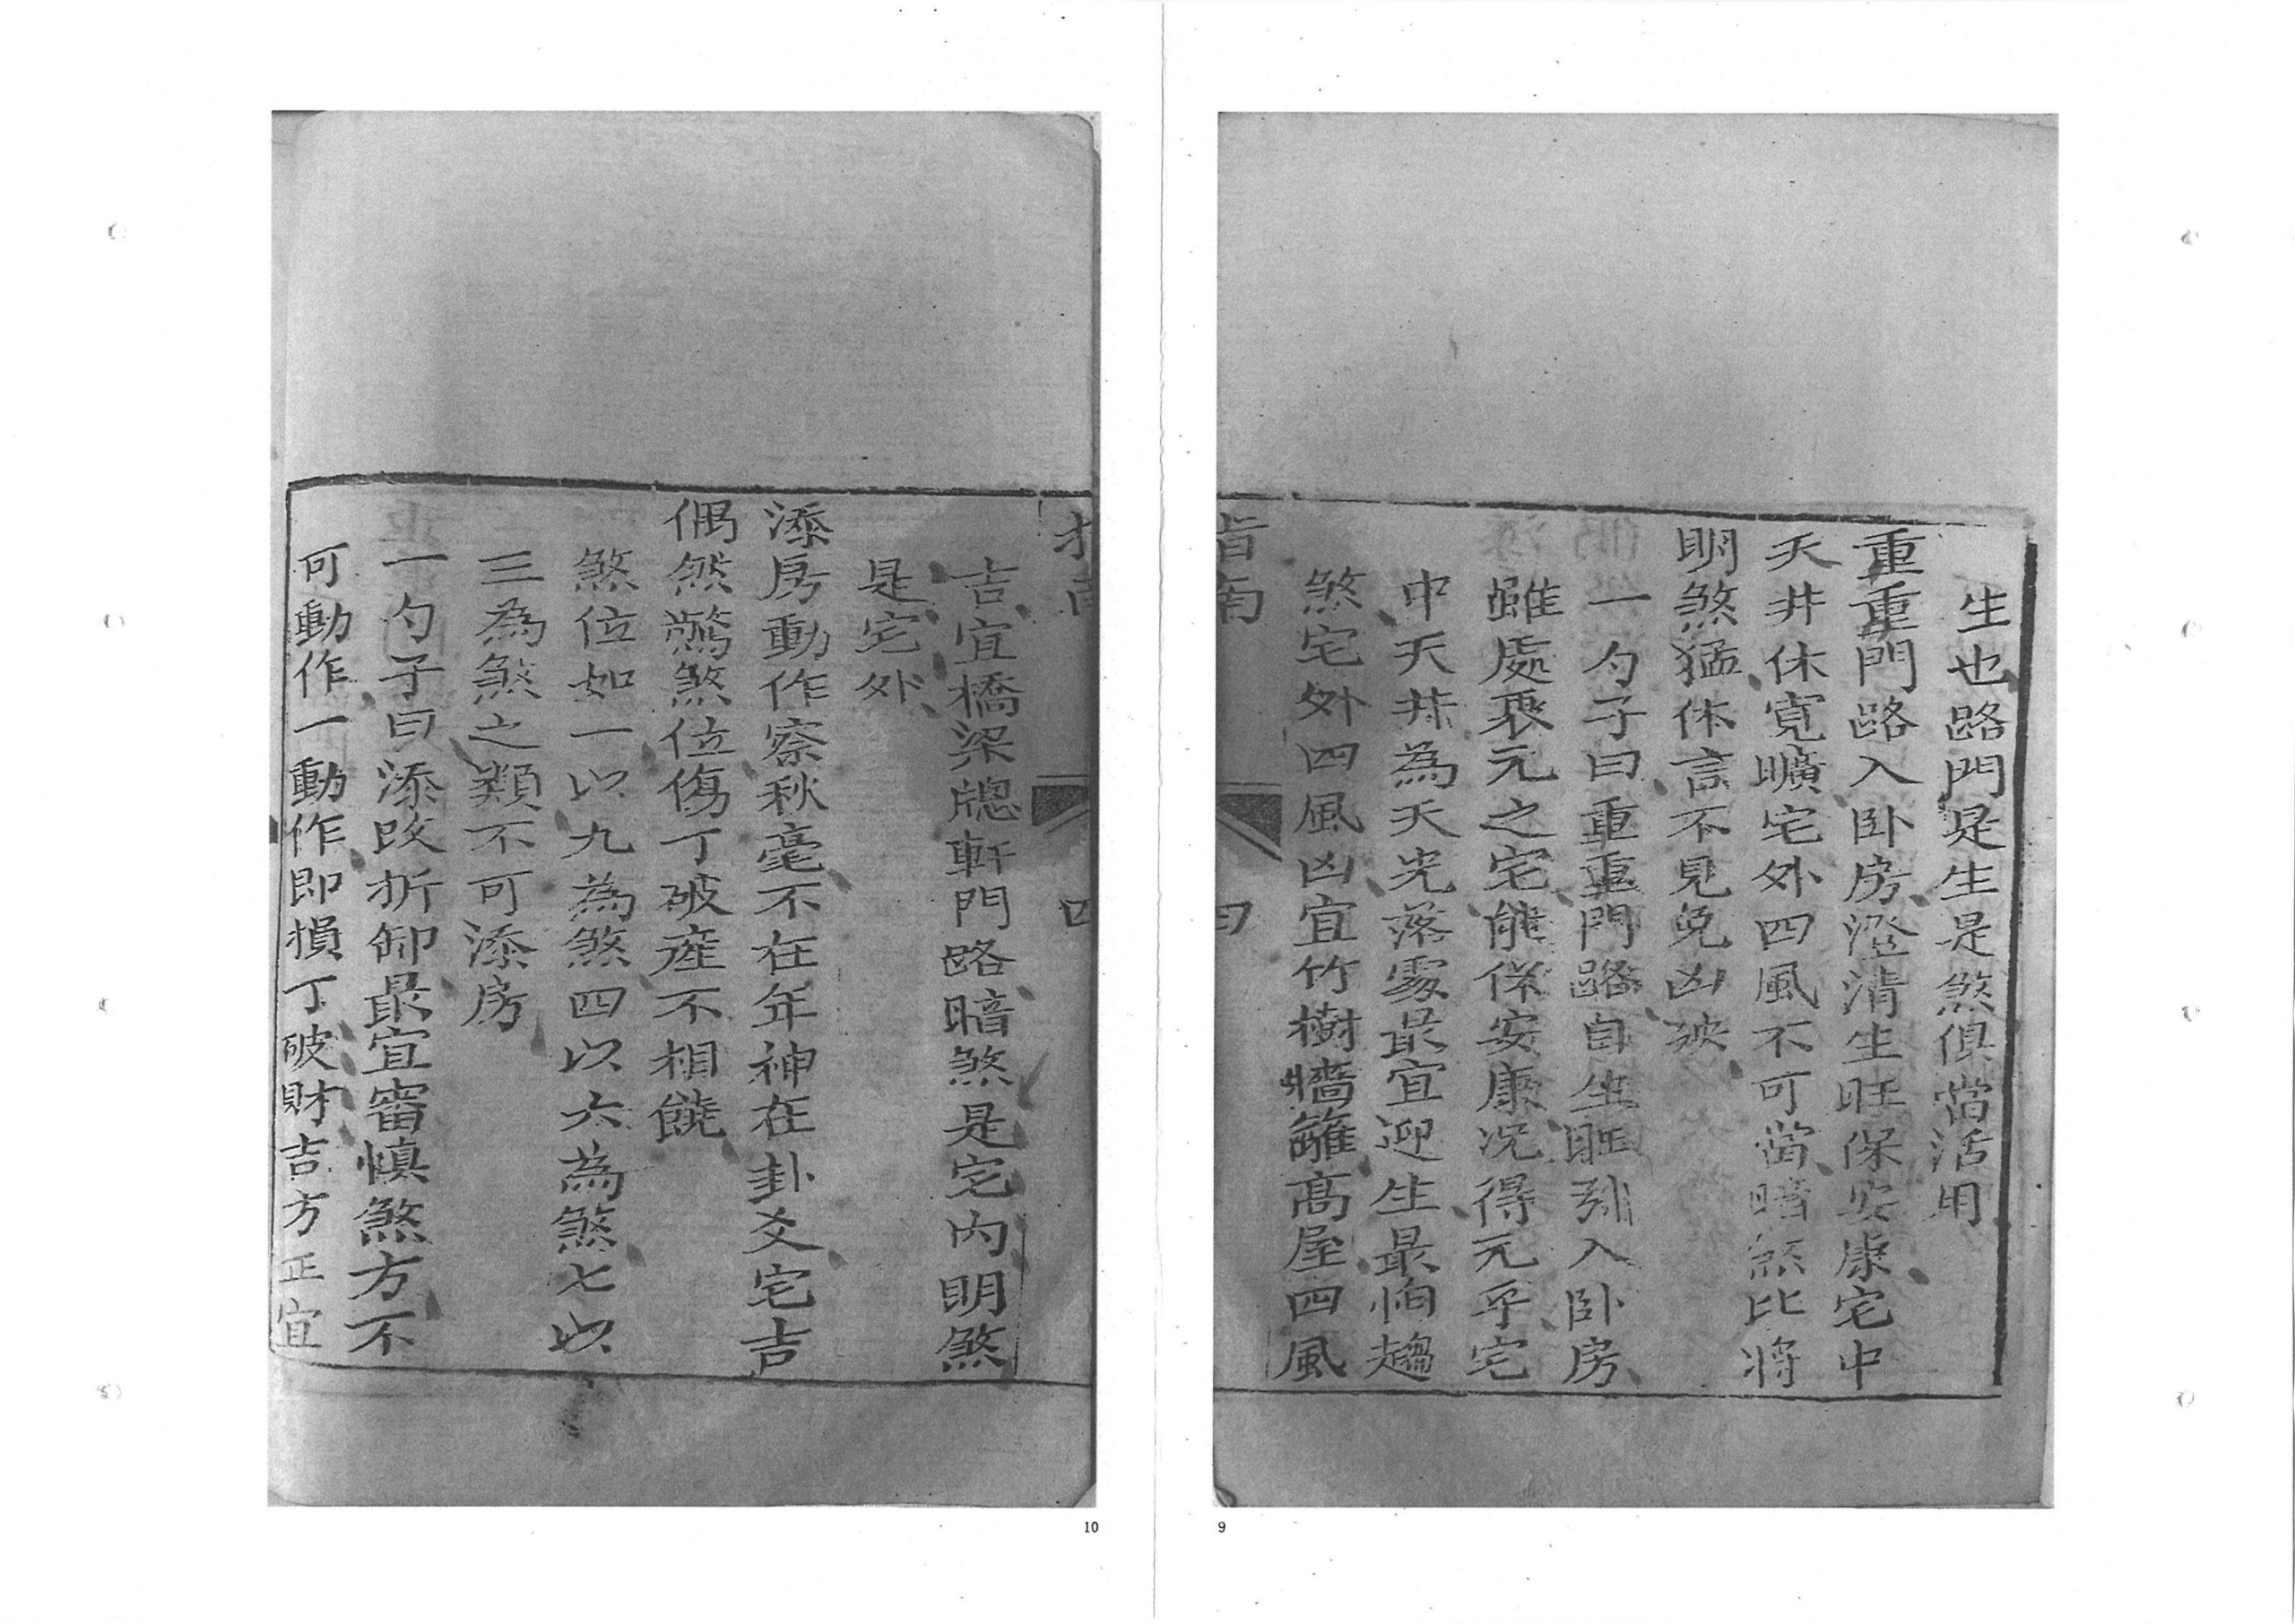 生也路門是生是煞俱當活用
重重門路入卧房澄清生旺保安康宅中
天井休寬曠宅外四風不可當暗煞比將
明煞猛休言不見免凶殃
一勺子曰重重門路自生旺引入卧房
雖處衰元之宅能保安康况得元乎宅
中天井為天光落處最宜迎生最怕趨
煞宅外四風凶宜竹樹墻籬高屋四風
指南
四
9
指南
四
吉宜橋梁牕軒門路暗煞是宅內明煞
是宅外
添房動作察秋毫不在年神在卦爻宅吉
偶然驚煞位傷丁破産不相饒
煞位如一以九為煞四以六為煞七以
三為煞之類不可添房
一勺子曰添改折卸最宜審慎煞方不
可動作一動作即損丁破財吉方正宜
10